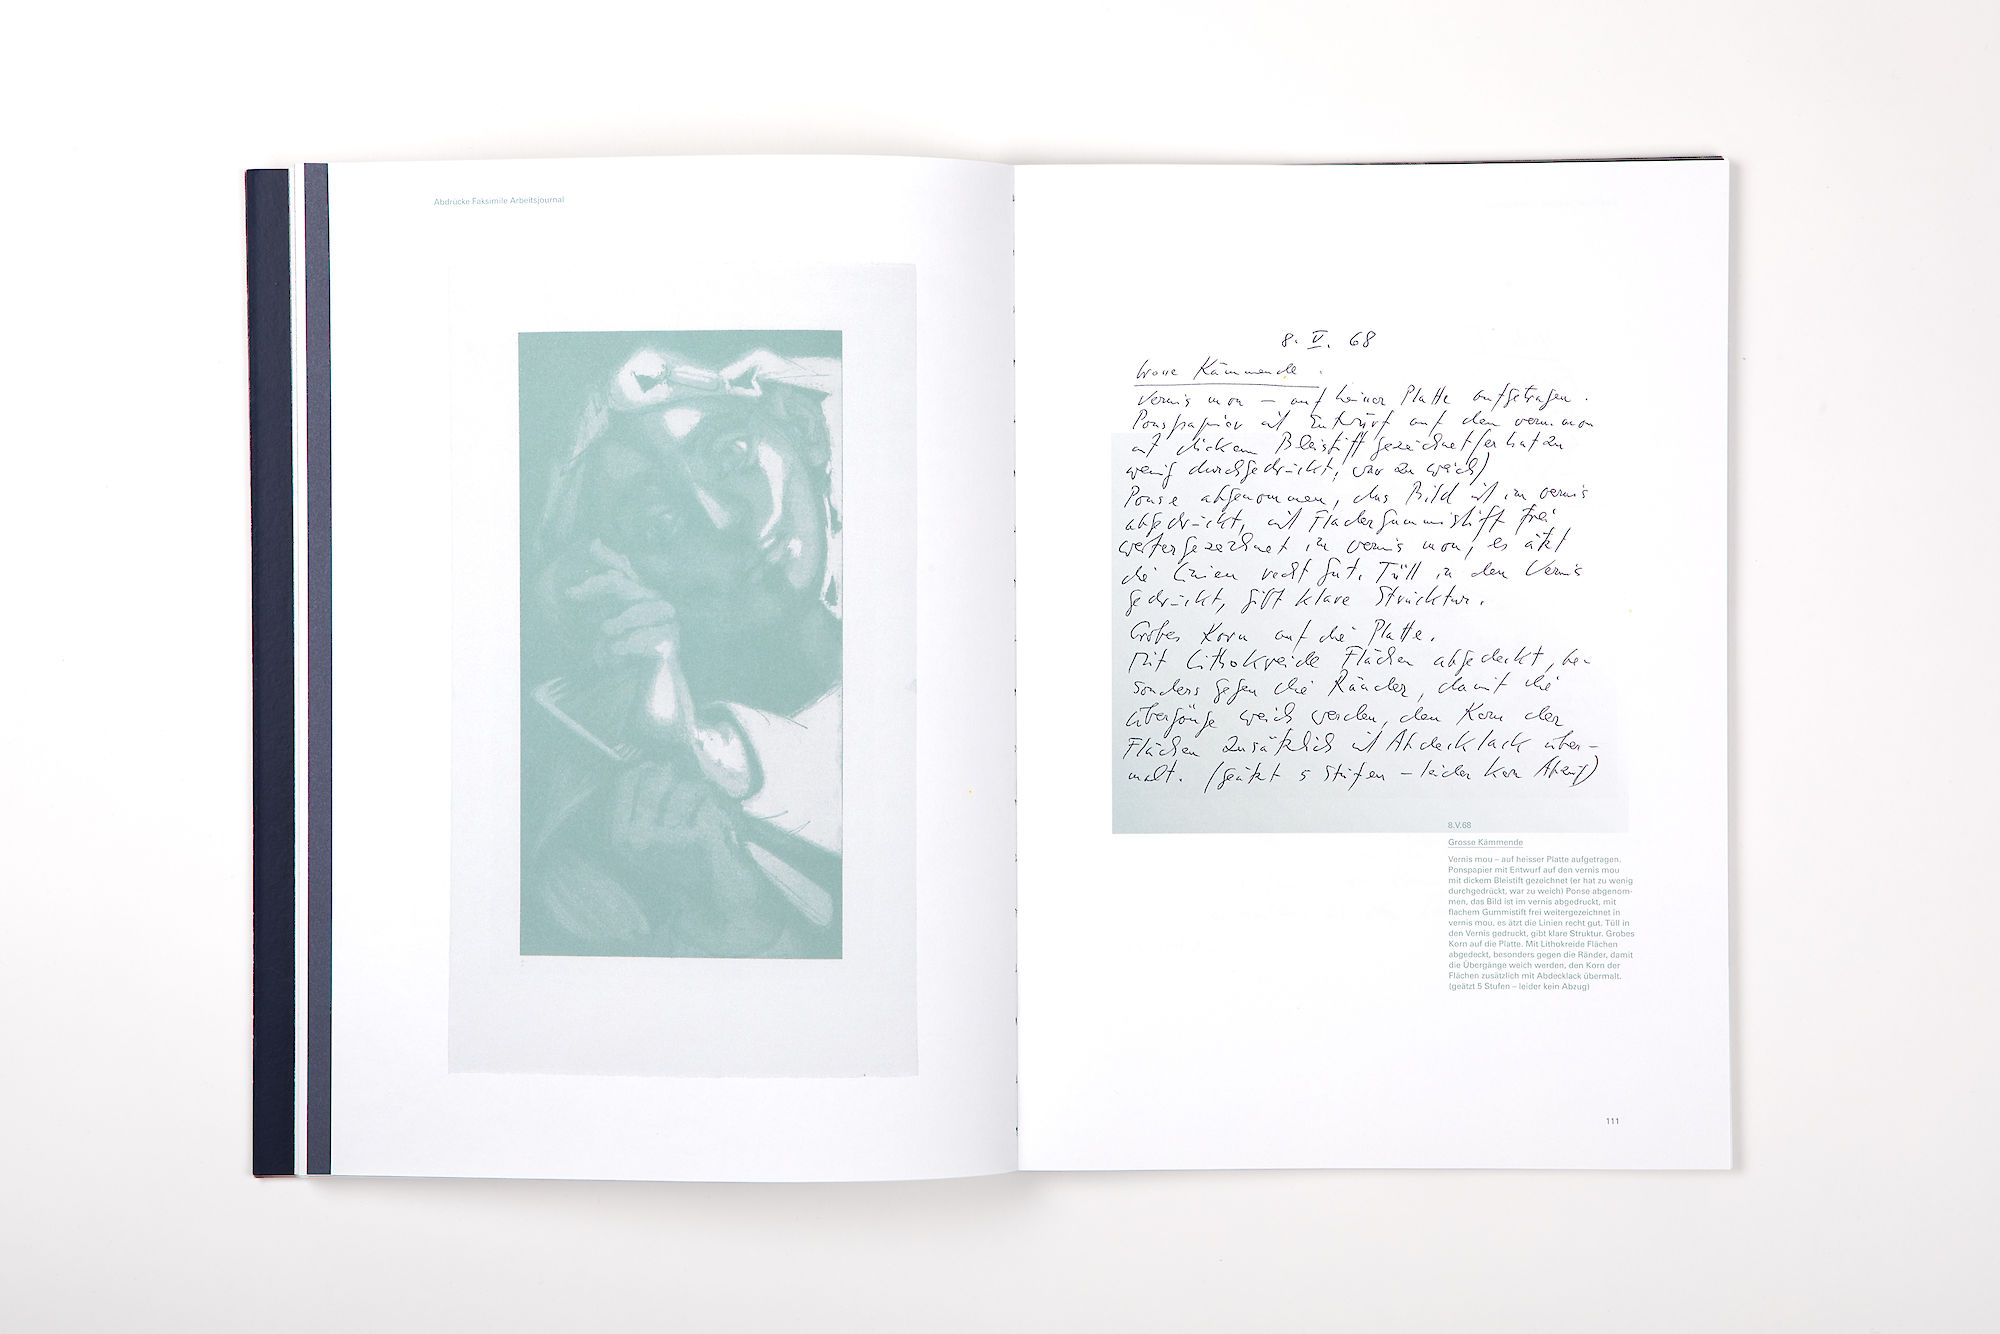 Abdrücke Faksimile Arbeitsjournal
8. V. 68
Grosse Kämmende.
Vernis mou – auf heisser Platte aufgetragen.
Ponspapier mit Entwurf auf den vernis mou
mit dickem Bleistift gezeichnet (er hat zu
wenig durchgedrückt, war zu weich)
Ponse abgenommen, das Bild ist im vernis
abgedrückt, mit flachem Gummistift frei
weitergezeichnet im vernis mou, es ätzt
die Linien recht gut. Tüll in den Vernis
gedrückt, gibt klare Strucktur.
Grobes Korn auf die Platte.
Mit Lithokreide Flächen abgedeckt, be-
sonders gegen die Ränder, damit die
Übergänge weich werden, den Korn der
Flächen zusätzlich mit Abdecklack über-
malt. (geätzt 5 Stufen – leider kein Abzug)
8.V.68
Grosse Kämmende
Vernis mou – auf heisser Platte aufgetragen.
Ponspapier mit Entwurf auf den vernis mou
mit dickem Bleistift gezeichnet (er hat zu wenig
durchgedrückt, war zu weich) Ponse abgenom-
men, das Bild ist im vernis abgedruckt, mit
flachem Gummistift frei weitergezeichnet in
vernis mou, es ätzt die Linien recht gut. Tüll in
den Vernis gedruckt, gibt klare Struktur. Grobes
Korn auf die Platte. Mit Lithokreide Flächen
abgedeckt, besonders gegen die Ränder, damit
die Übergänge weich werden, den Korn der
Flächen zusätzlich mit Abdecklack übermalt.
(geätzt 5 Stufen – leider kein Abzug)
111